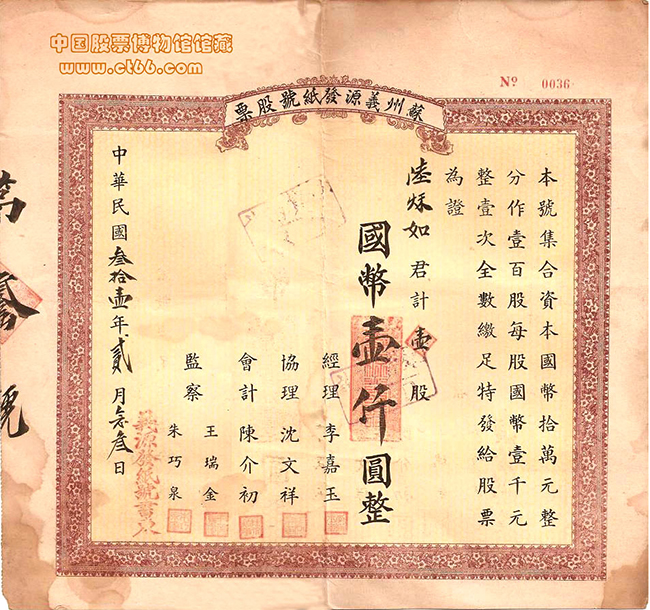 中国股票博物馆馆藏
www.ct66.com
Nº 0036
蘇州義源發紙號股票
本號集合資本國幣拾萬元整
分作壹百股每股國幣壹千元
整壹次全數繳足特發給股票
為證
陸烁如君計壹股
國幣壹仟圓整
經理李嘉玉
協理沈文祥
會計陳介初
監察王瑞金
朱巧泉
中華民國叁拾壹年貳月 叁日
義源發紙號
號